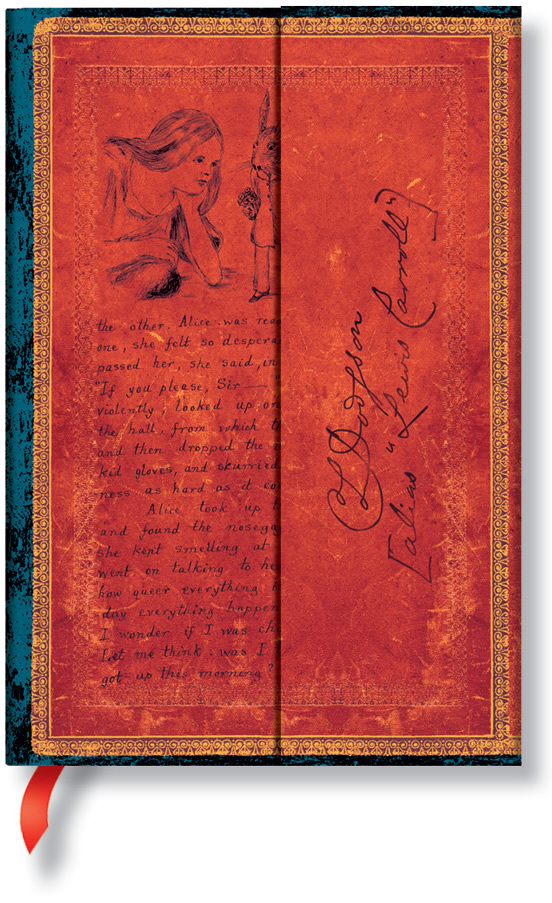 the other. Alice was read
one, she felt so despera
passed her, she said, in
"If you please, Sir—
violently, looked up on
the hall, from which t
and then dropped the n
kid gloves, and skurried
ness as hard as it co
Alice took up t
and found the nosega
she kept smelling at
went on talking to he
how queer everything
day everything happen
I wonder if I was cha
Let me think: was I
got up this morning?
CL Dodgson
[alias "Lewis Carroll"]